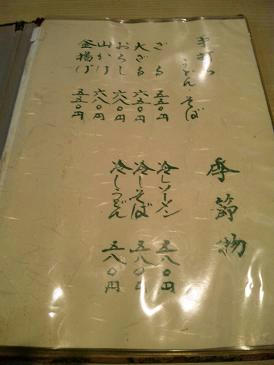 手打ち
うどん・そば
ざる 五五〇円
大ざる 六五〇円
おろし 六八〇円
山かけ 六八〇円
釜揚げ 五五〇円
季節物
冷しソーメン 五八〇円
冷しそば 五八〇円
冷しうどん 五八〇円